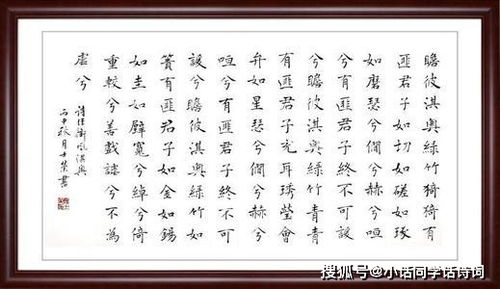 瞻彼淇奥綠竹猗猗有
匪君子如切如磋如琢
如磨瑟兮僩兮赫兮咺
兮有匪君子終不可諼
兮瞻彼淇奥綠竹青青
有匪君子充耳琇瑩會
弁如星瑟兮僩兮赫兮
咺兮有匪君子終不可
諼兮瞻彼淇奥綠竹如
簀有匪君子如金如錫
如圭如璧寬兮綽兮猗
重較兮善戲謔兮不為
虐兮
詩經衛風淇奥
丙申秋月士榮書
搜狐号@小话同学话诗词